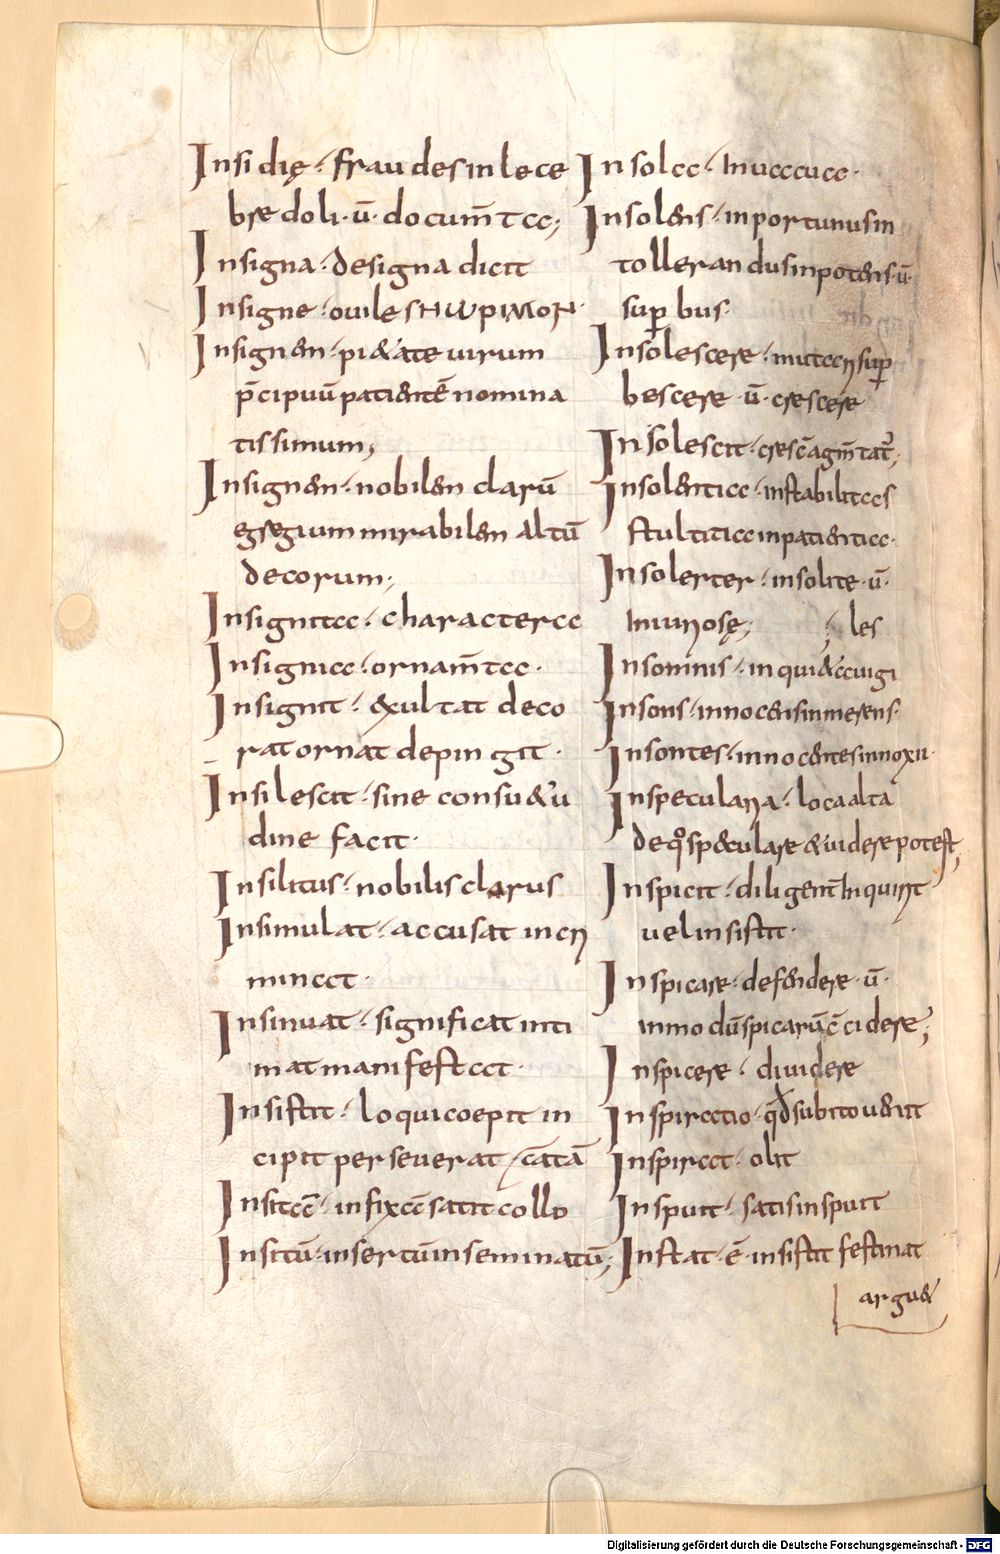 Insidię· fraudes inlece
bre doli· ū· docum̄ta;
Insigna· designa dicit
Insigne· ouile
Insignem· pietate uirum
p̄cipuū patientē nomina
tissimum;
Insignem· nobilem clarū
egregium mirabilem altū
decorum;
Insignita· characterea
Insignia· ornam̄ta·
Insignit· exultat deco
rat ornat depingit·
Insilescit· sine consuetu
dine facit·
Insilitus· nobilis clarus
Insimulat· accusat incri
minat·
Insinuat· significat inti
mat manifestat·
Insistit· loqui coepit in
cipit perseuerat
Insitā· infixā satit collo
Insitū· insertū inseminatū;
Insola· inuaua·
Insolens· inportunus in
tollerandus inpotens· ū·
sup bus·
Insolescere· initiari sup
bescere· ū· crescere
Insolescit· cresc̄ agm̄tat;
Insolentia· instabilitas
stultitia inpatientia·
Insolerter· insolite· ū·
iniuriosę; ; les
Insomnis· inquieta uigi
Insons· innocens inmerens·
Insontes· innocentes innoxii·
Inspecularia· loca alta
de q° speculare et uidere potest,
Inspicit· diligent inquirit
uel insistit·
Inspicare· defendere· ū·
in modū spicarū cidere;
Inspicere· diuidere
Inspiratio· qđ subito uenit
Inspirat· olit
Inspuit· satis inspuit
Instat· ē· insistit festinat
arguet
Digitalisierung gefördert durch die Deutsche Forschungsgemeinschaft - DFG